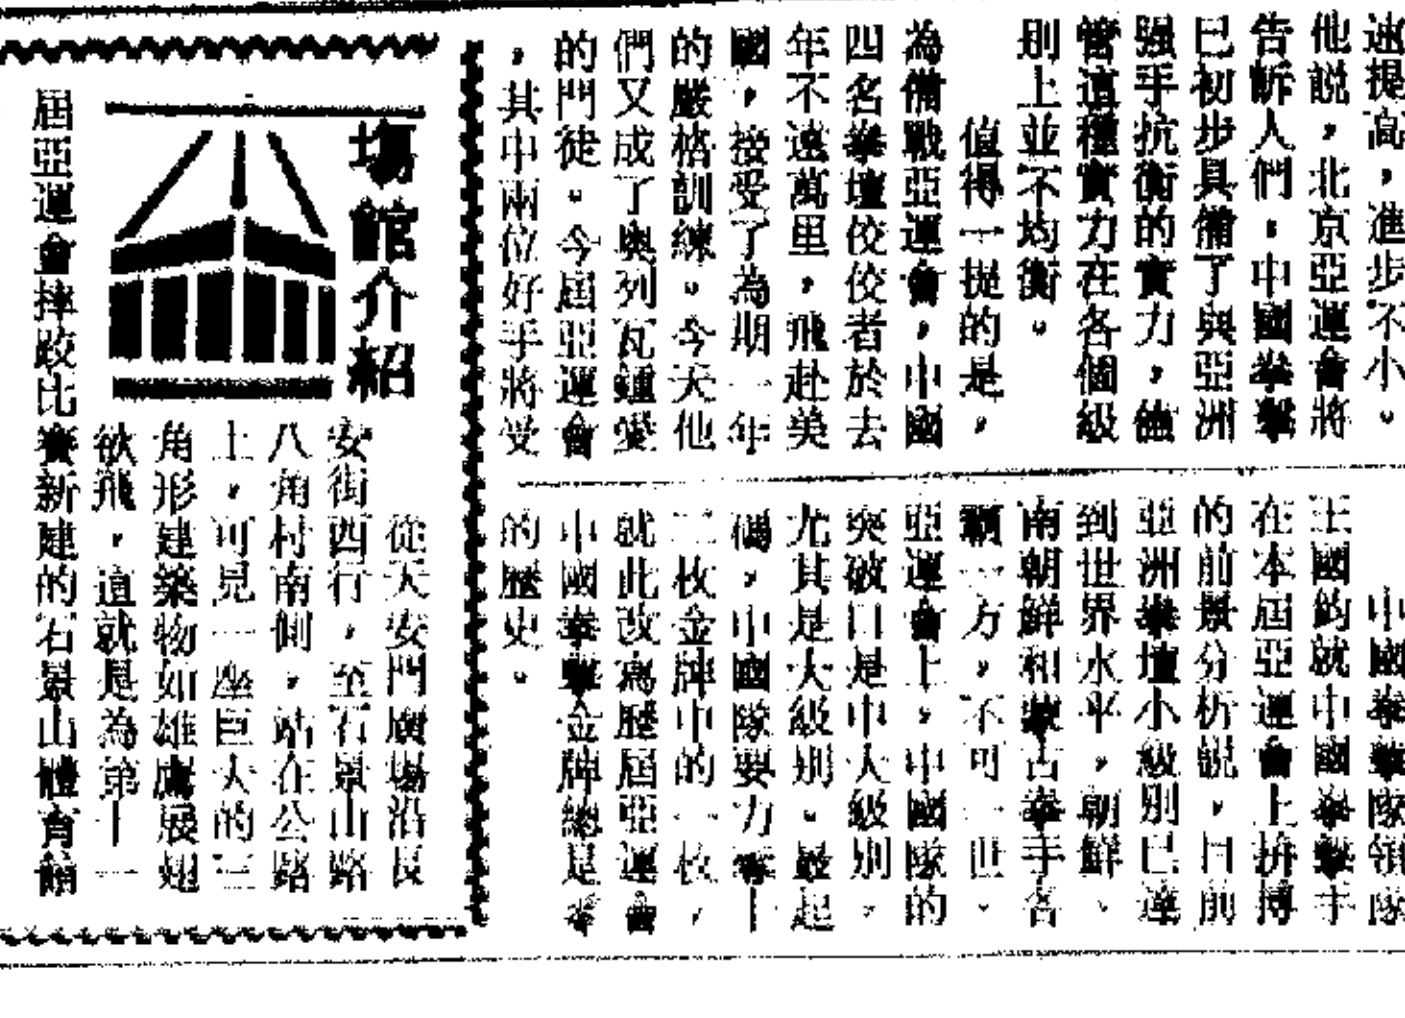 速提高，進步不小。
他説，北京亞運會將
告訴人們：中國拳擊
已初步具備了與亞洲
强手抗衡的實力，儘
管這種實力在各個級
别上並不均衡。
值得一提的是，
為備戰亞運會，中國
四名拳壇佼佼者於去
年不遠萬里，飛赴美
國，接受了為期一年
的嚴格訓練。今天他
們又成了奥列瓦鍾愛
的門徒。今屆亞運會
，其中兩位好手將受
中國拳擊隊領隊
王國鈞就中國拳擊手
在本屆亞運會上拚搏
的前景分析説，目前
亞洲拳壇小級别已達
到世界水平，朝鮮、
南朝鮮和蒙古拳手各
霸一方，不可一世。
亞運會上，中國隊的
突破口是中大級别，
尤其是大級别。最起
碼，中國隊要力奪十
二枚金牌中的一枚，
就此改寫歷屆亞運會
中國拳擊金牌總是零
的歷史。
場館介紹
從天安門廣場沿長
安街西行，至石景山路
八角村南側，站在公路
上，可見一座巨大的三
角形建築物如雄鷹展翅
欲飛，這就是為第十一
屆亞運會摔跤比賽新建的石景山體育館